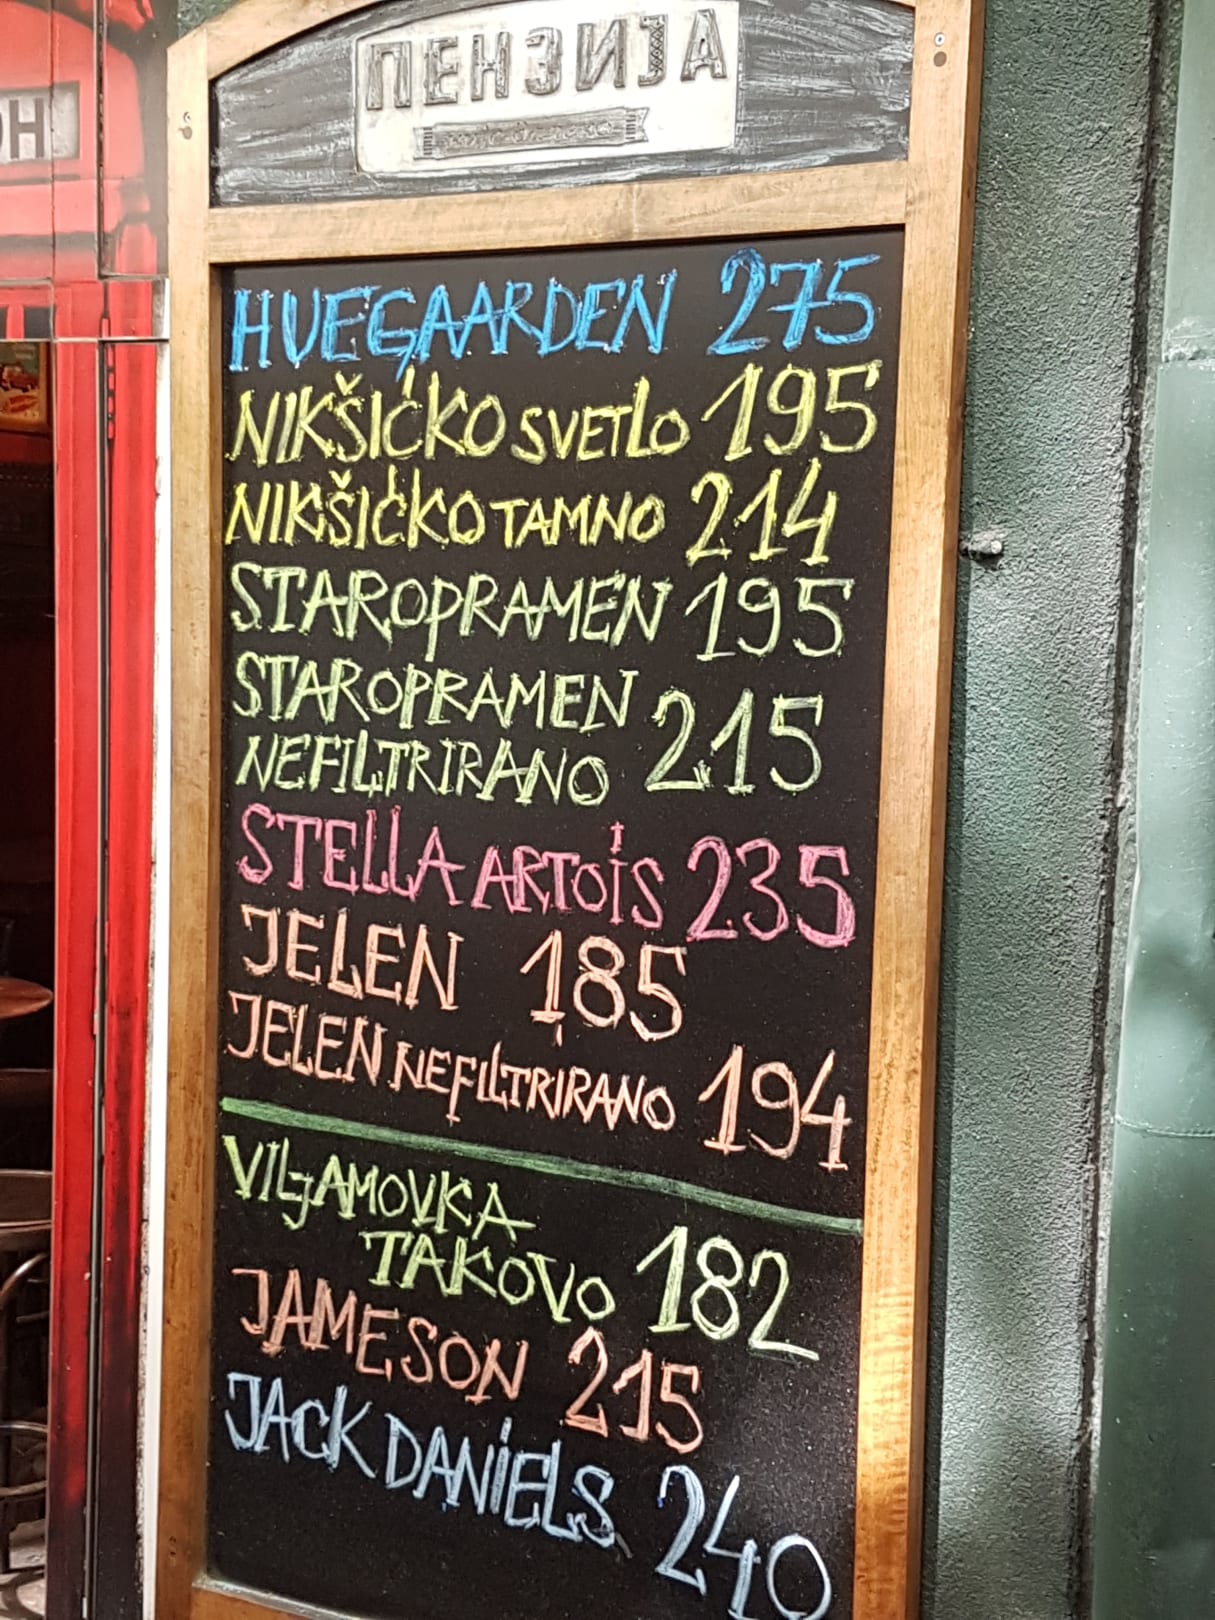 ПЕНЗИЈА
ОН
HUEGAARDEN 275
NIKŠIĆKO SVETLO 195
NIKŠIĆKO TAMNO 214
STAROPRAMEN 195
STAROPRAMEN
NEFILTRIRANO 215
STELLA ARTOIS 235
JELEN 185
JELEN NEFILTRIRANO 194
VILJAMOVKA
TAKOVO 182
JAMESON 215
JACK DANIELS 240